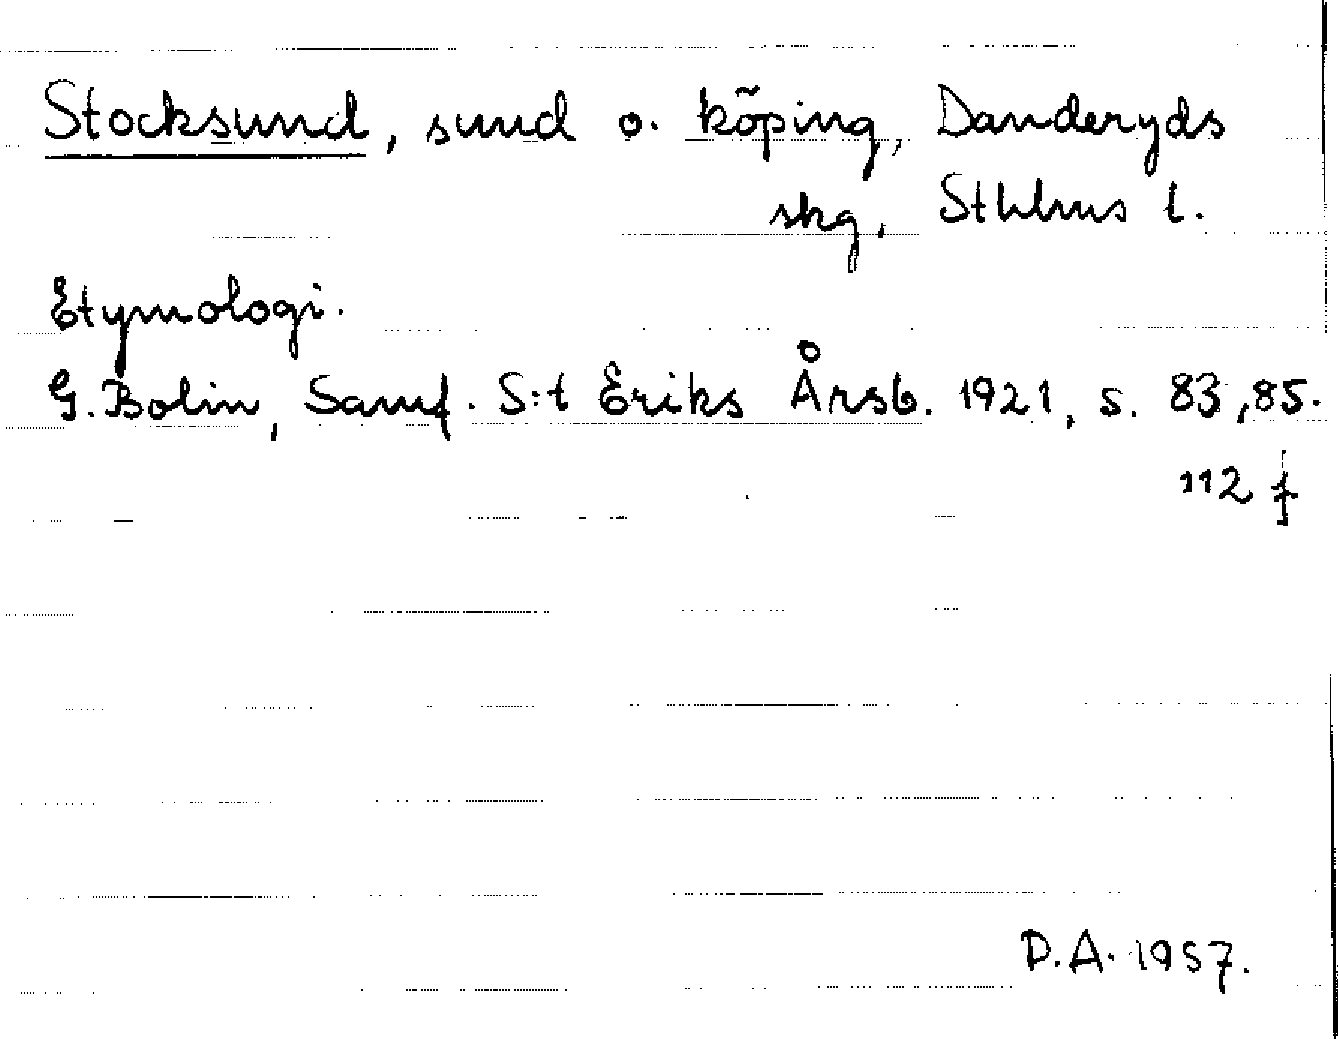 Stocksund, sund o. köping, Danderyds
skg, Sthlms l.
Etymologi.
G. Bolin, Samf. S:t Eriks Årsb. 1921, s. 83, 85.
112 f
D.A. 1957.